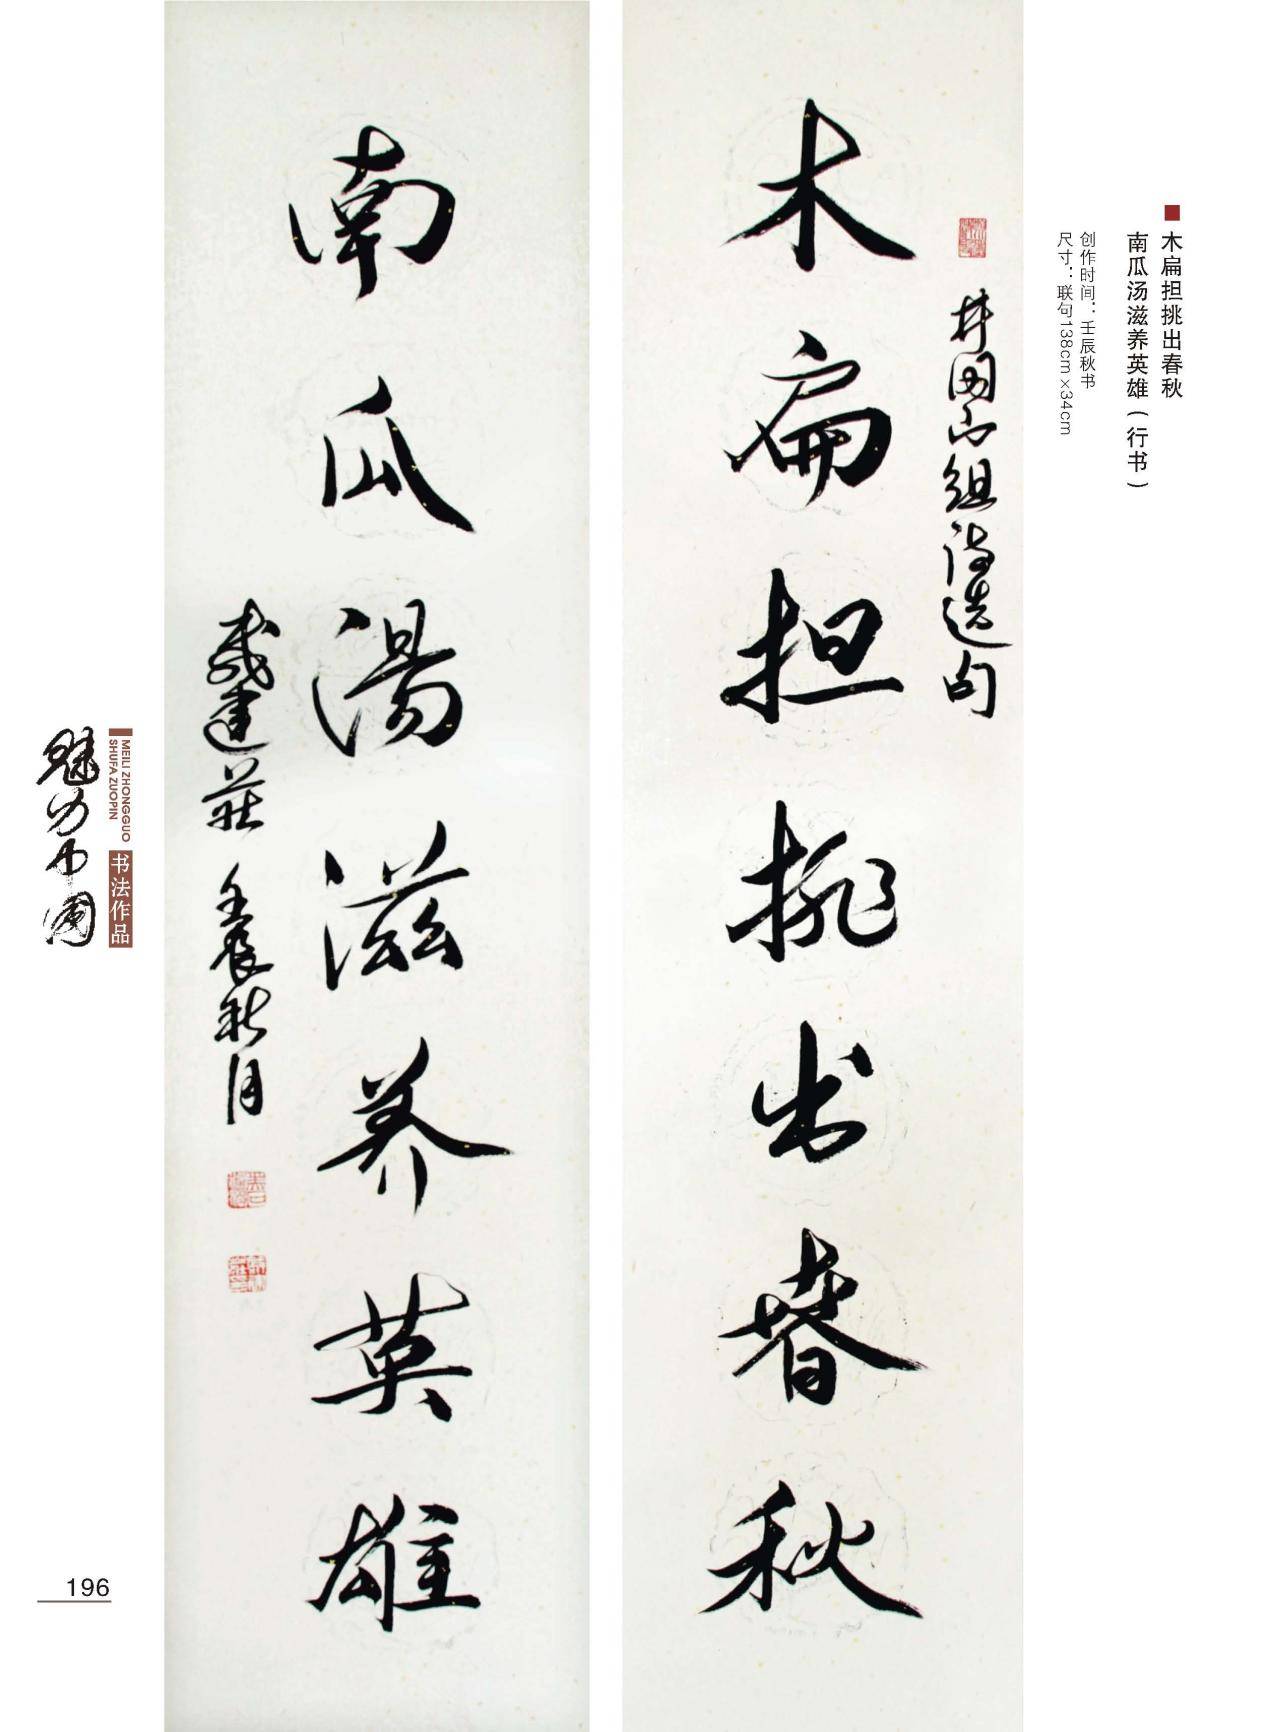 木扁担挑出春秋
南瓜汤滋养英雄（行书）
创作时间：壬辰秋书
尺寸：联句138cm×34cm
井冈山组诗选句
木扁担挑出春秋
南瓜湯滋养英雄
建莊壬辰秋月
魅力中国
MEILI ZHONGGUO
SHUFA ZUOPIN
书法作品
196